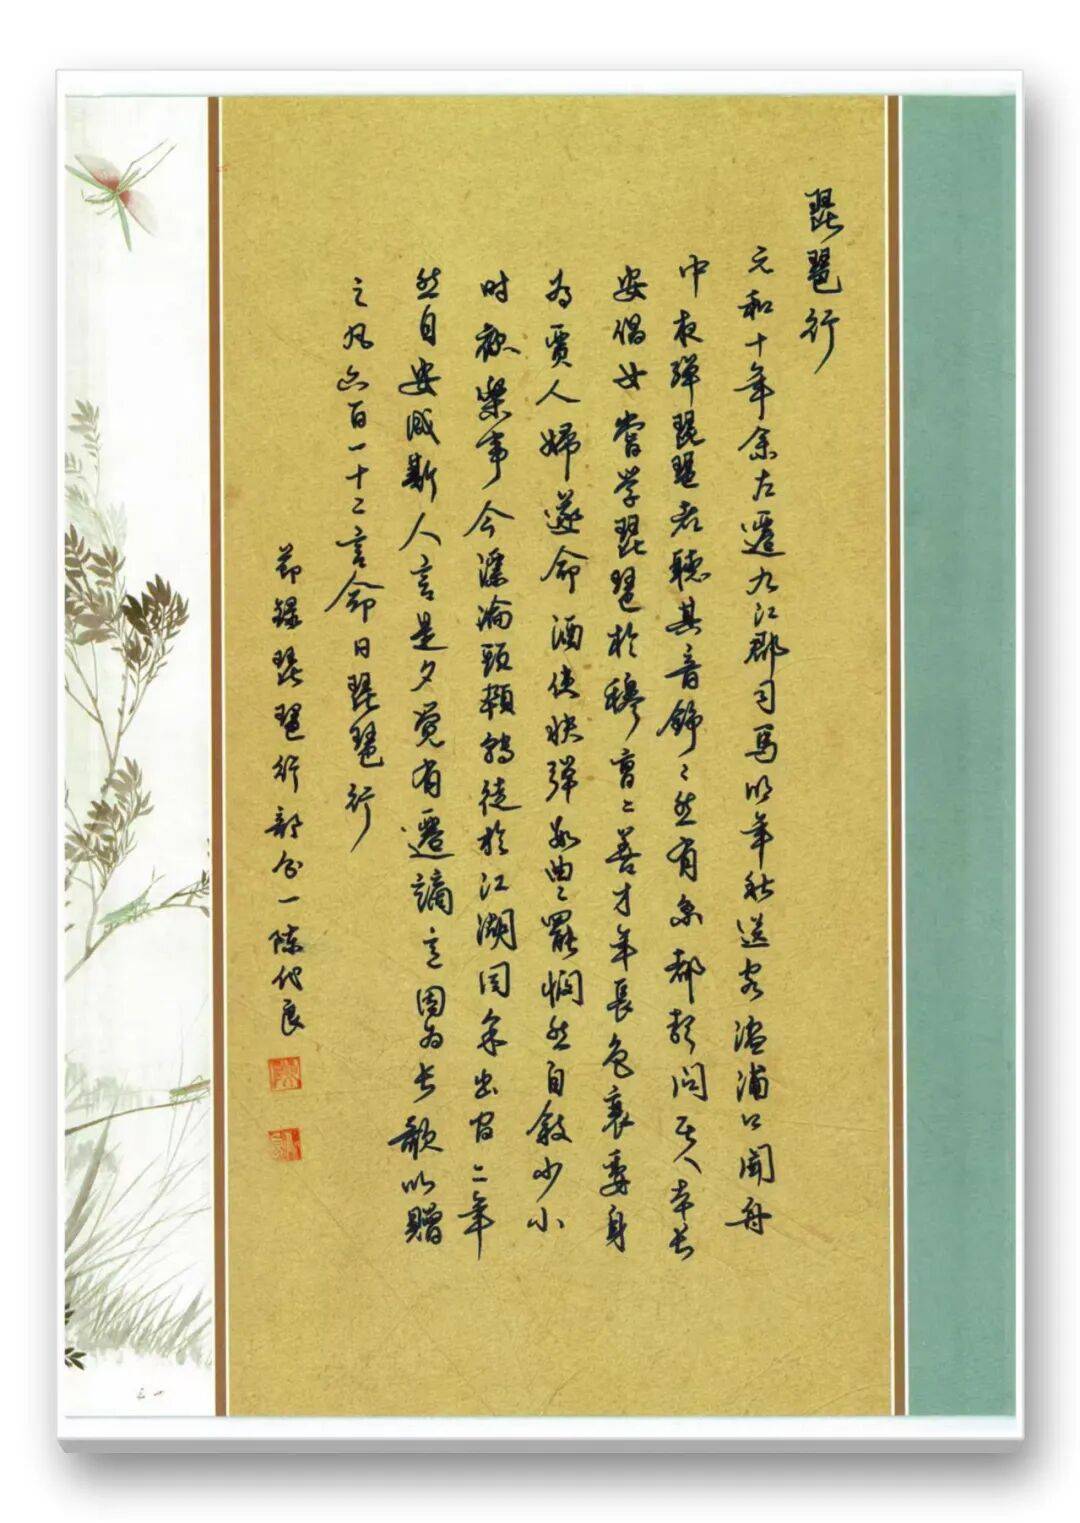 琵琶行
元和十年余左遷九江郡司馬明年秋送客湓浦口聞舟
中夜弹琵琶者聽其音錚〻然有京都聲问其人本长
安倡女嘗学琵琶於穆曹二善才年長色衰委身
为賈人婦遂命酒使快弹数曲〻罷憫然自叙少小
时歡樂事今漂淪顦顇轉徙於江湖间余出官二年
然自安感斯人言是夕覺有遷謫意因为长歌以贈
之凡六百一十二言命曰琵琶行
節録琵琶行部分一陳代良